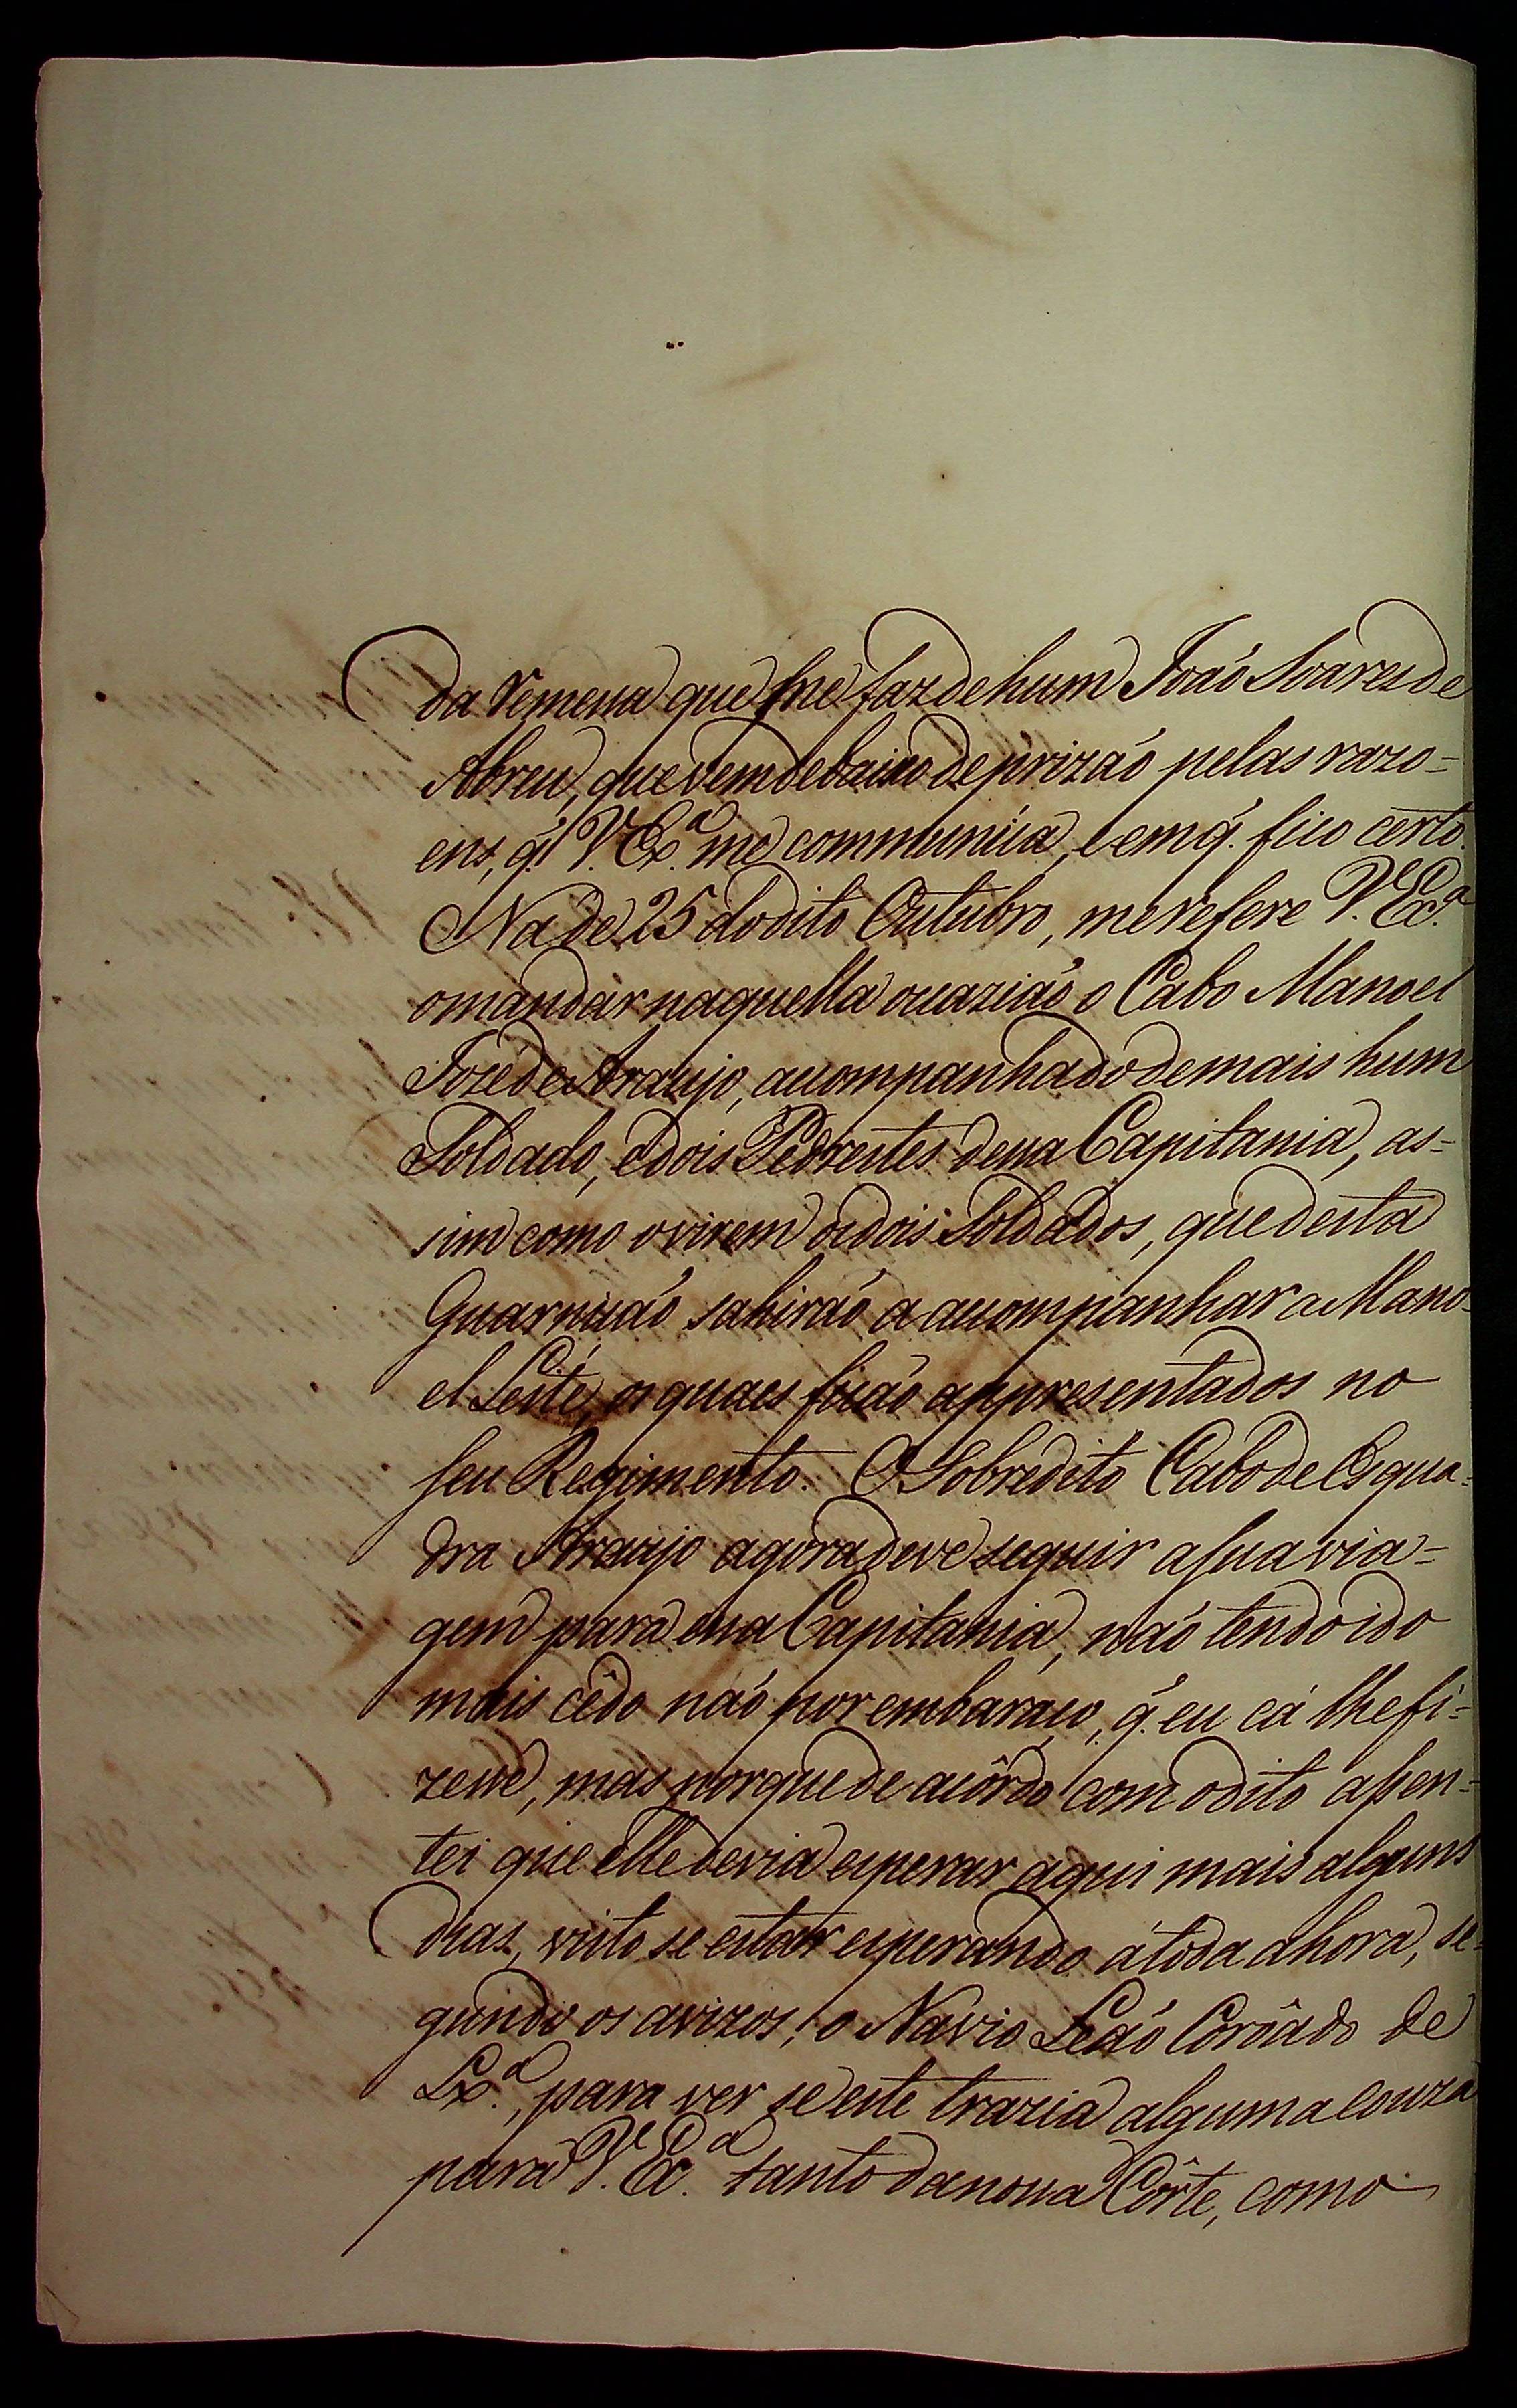 da remessa que me faz de hum João Soares de
Abreu, que vem debaixo de prizaó pelas razo=
ens, q̃. V. Ex.ª me communica, e em q̃. fico certo.
Na de 25 do dito Outubro, me refere V. Ex.ª
o mandar naquella occaziaó o Cabo Manoel
Jozé de Araujo, accompanhado de mais hum
Soldado, e dois Pedrestes dessa Capitania, as=
sim como o virem os dois Soldados, que desta
Guarniçaó sahiraó a accompanhar a Mano=
el Leite, os quaes ficaó appresentados no
seu Regimento. O Sobredito Cabo de Esqua=
dra Araujo agora deve seguir a sua via=
gem para essa Capitania, naó tendo ido
mais cêdo naó por embaraço, q̃. eu cá lhe fi=
zesse, mas porque de acôrdo com o dito assen=
tei que elle devia esperar aqui mais alguns
dias, visto se estar esperando á toda a hora, se=
gundo os avizos, o Navio Leaó Corôado de
Lx.ª, para ver se este trazia alguma couza
para V. Ex.ª tanto da nossa Côrte, como